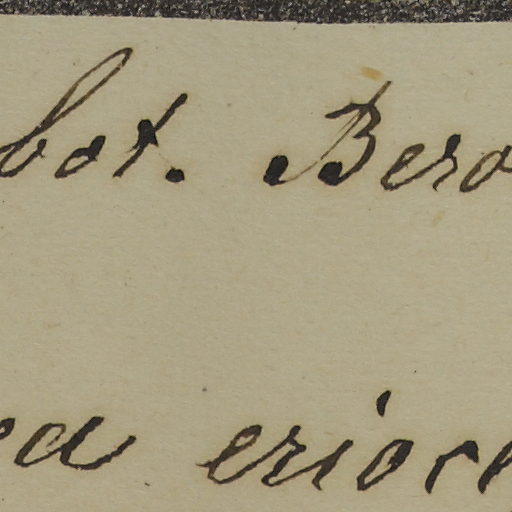 bot. Bero
ea erioce